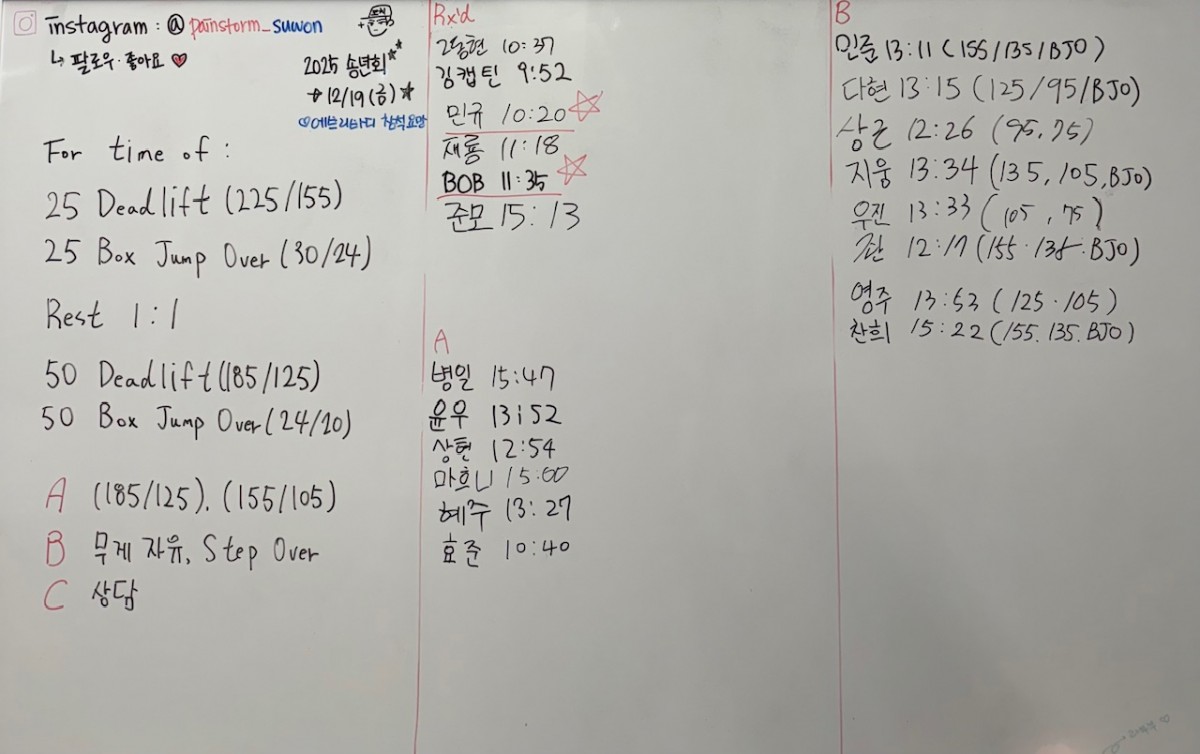 instagram : @ painstorm_suwon
↳ 팔로우·좋아요 ♥
2025 송년회
→ 12/19 (금)
♡에브리바디 참석요망
For time of :
25 Deadlift (225/155)
25 Box Jump Over (30/24)
Rest 1 : 1
50 Deadlift (185/125)
50 Box Jump Over (24/20)
A (185/125). (155/105)
B 무게 자유, Step Over
C 상담
Rx'd
2동현 10:37
김캡틴 9:52
민규 10:20 ☆
재룡 11:18
BOB 11:35 ☆
준모 15:13
A
병일 15:47
윤우 13:52
상현 12:54
마흐니 15:00
혜주 13:27
효준 10:40
B
민준 13:11 (155/135/BJO)
다현 13:15 (125/95/BJO)
상근 12:26 (95, 75)
지웅 13:34 (135, 105, BJO)
우진 13:33 (105, 75)
12:17 (155·135·BJO)
영주 13:53 (125·105)
찬희 15:22 (155.135.BJO)